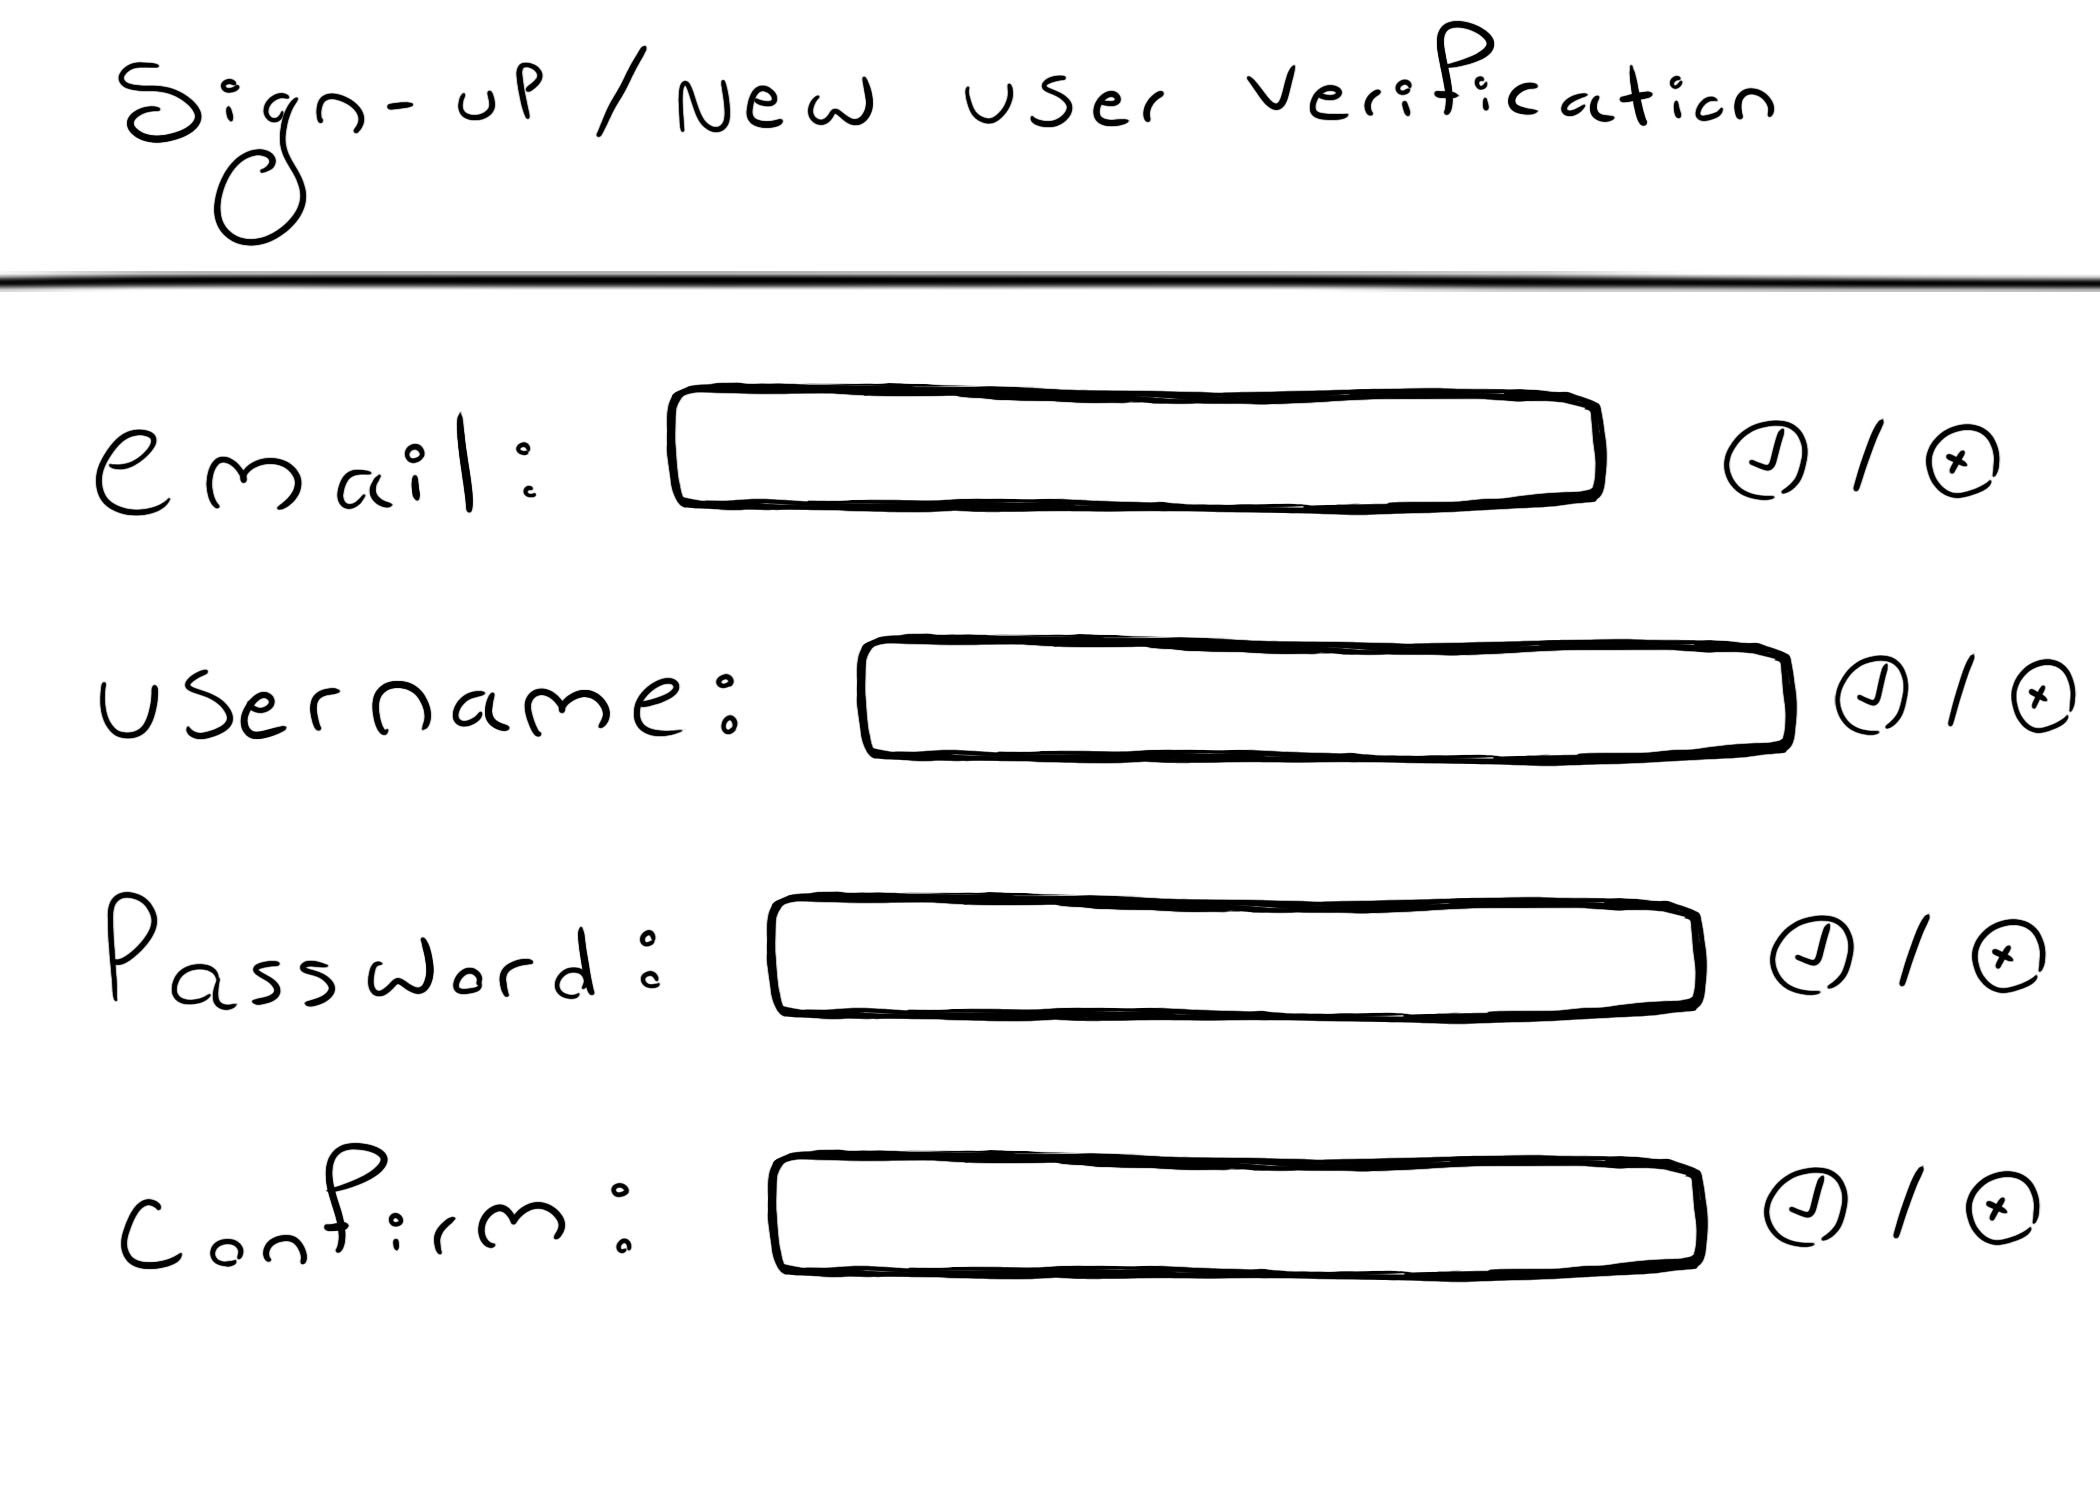 Sign-up / New user verification
email: /
username: /
Password: /
Confirm: /